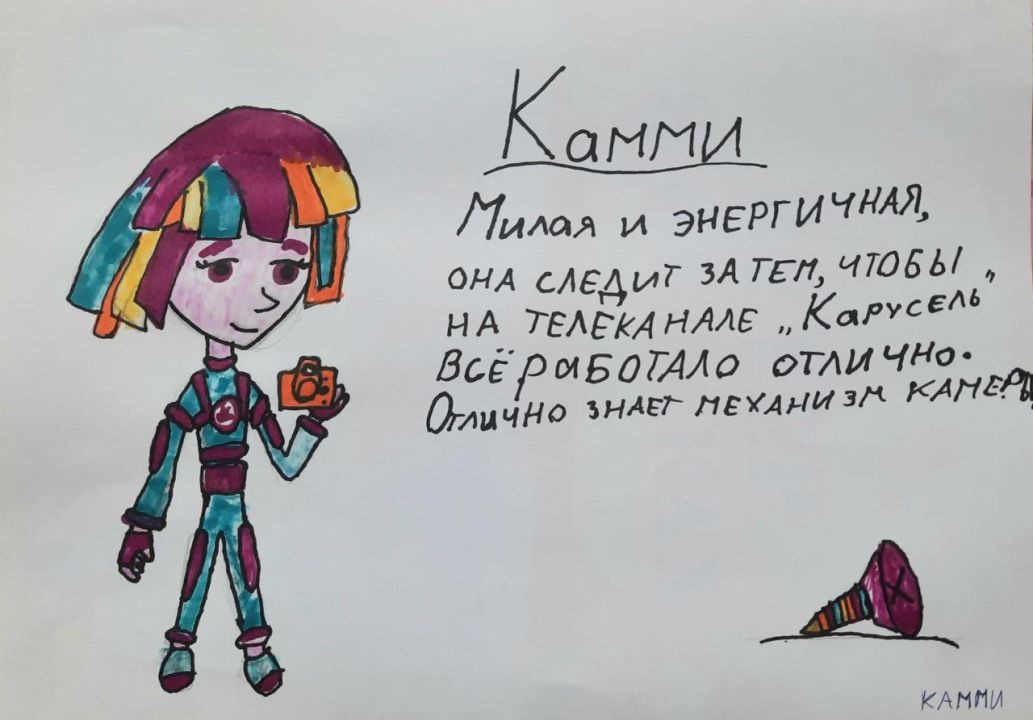 Камми
Милая и ЭНЕРГИЧНАЯ,
ОНА СЛЕДИТ ЗА ТЕМ, ЧТОБЫ
НА ТЕЛЕКАНАЛЕ „Карусель"
ВСЁ РАБОТАЛО ОТЛИЧНО.
Отлично ЗНАЕТ МЕХАНИЗМ КАМЕРЫ
КАММИ